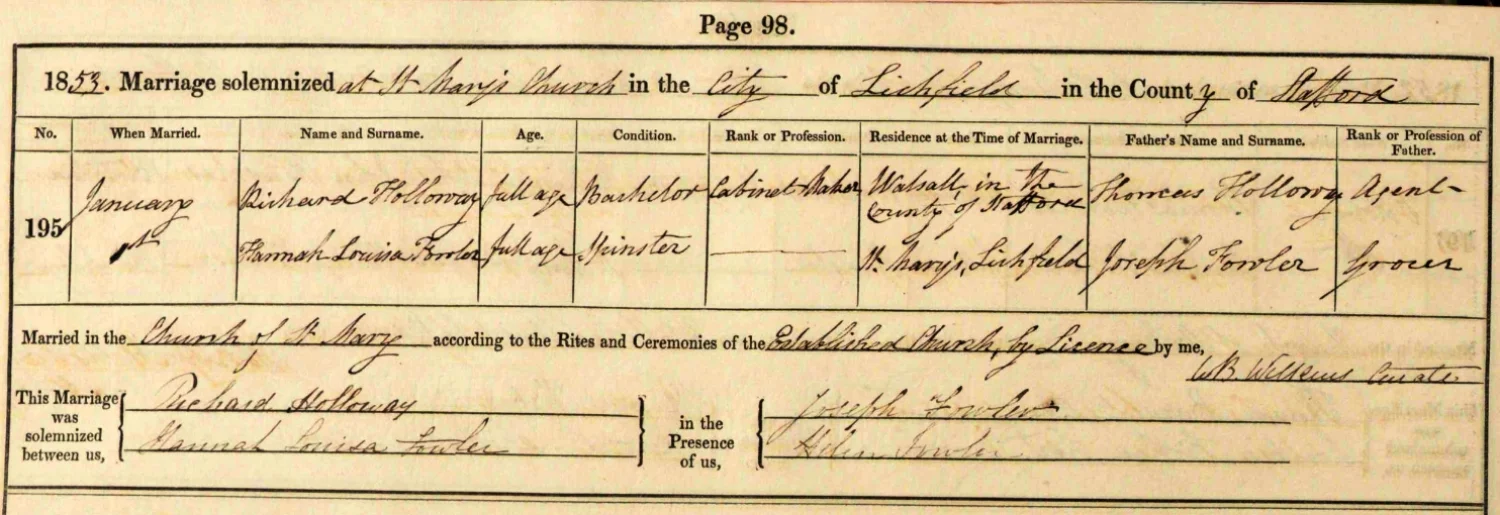 Page 98.
1853. Marriage solemnized at St Mary's Church in the City of Lichfield in the County of Stafford
No. When Married. Name and Surname. Age. Condition. Rank or Profession. Residence at the Time of Marriage. Father's Name and Surname. Rank or Profession of Father.
195 January 1st Richard Holloway full age Bachelor Cabinet Maker Walsall, in the County of Stafford Thomas Holloway Agent
Hannah Louisa Fowler full age Spinster St. Mary's, Lichfield Joseph Fowler Grocer
Married in the Church of St Mary according to the Rites and Ceremonies of the Established Church, by Licence by me,
W.B. Curate
This Marriage was solemnized between us, Richard Holloway in the Presence of us, Joseph Fowler
Hannah Louisa Fowler Helen Fowler